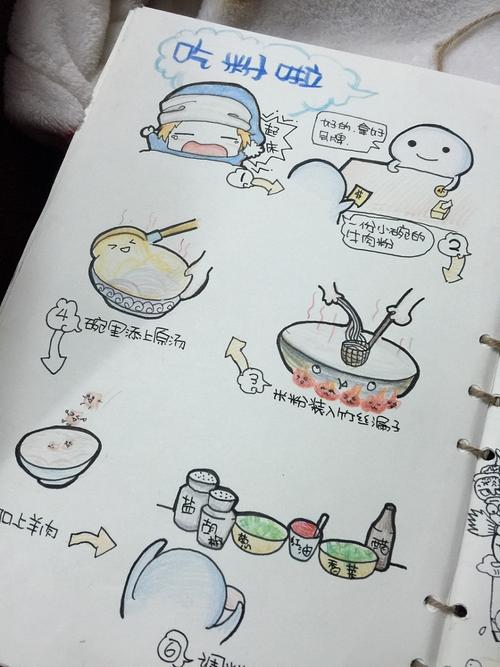 起床
好的，拿好
号牌
1
一份小碗的
牛肉粉
2
4
碗里添上原汤
3
米粉装入竹丝漏子
加上羊肉
盐
胡椒
葱
红油
香菜
醋
6